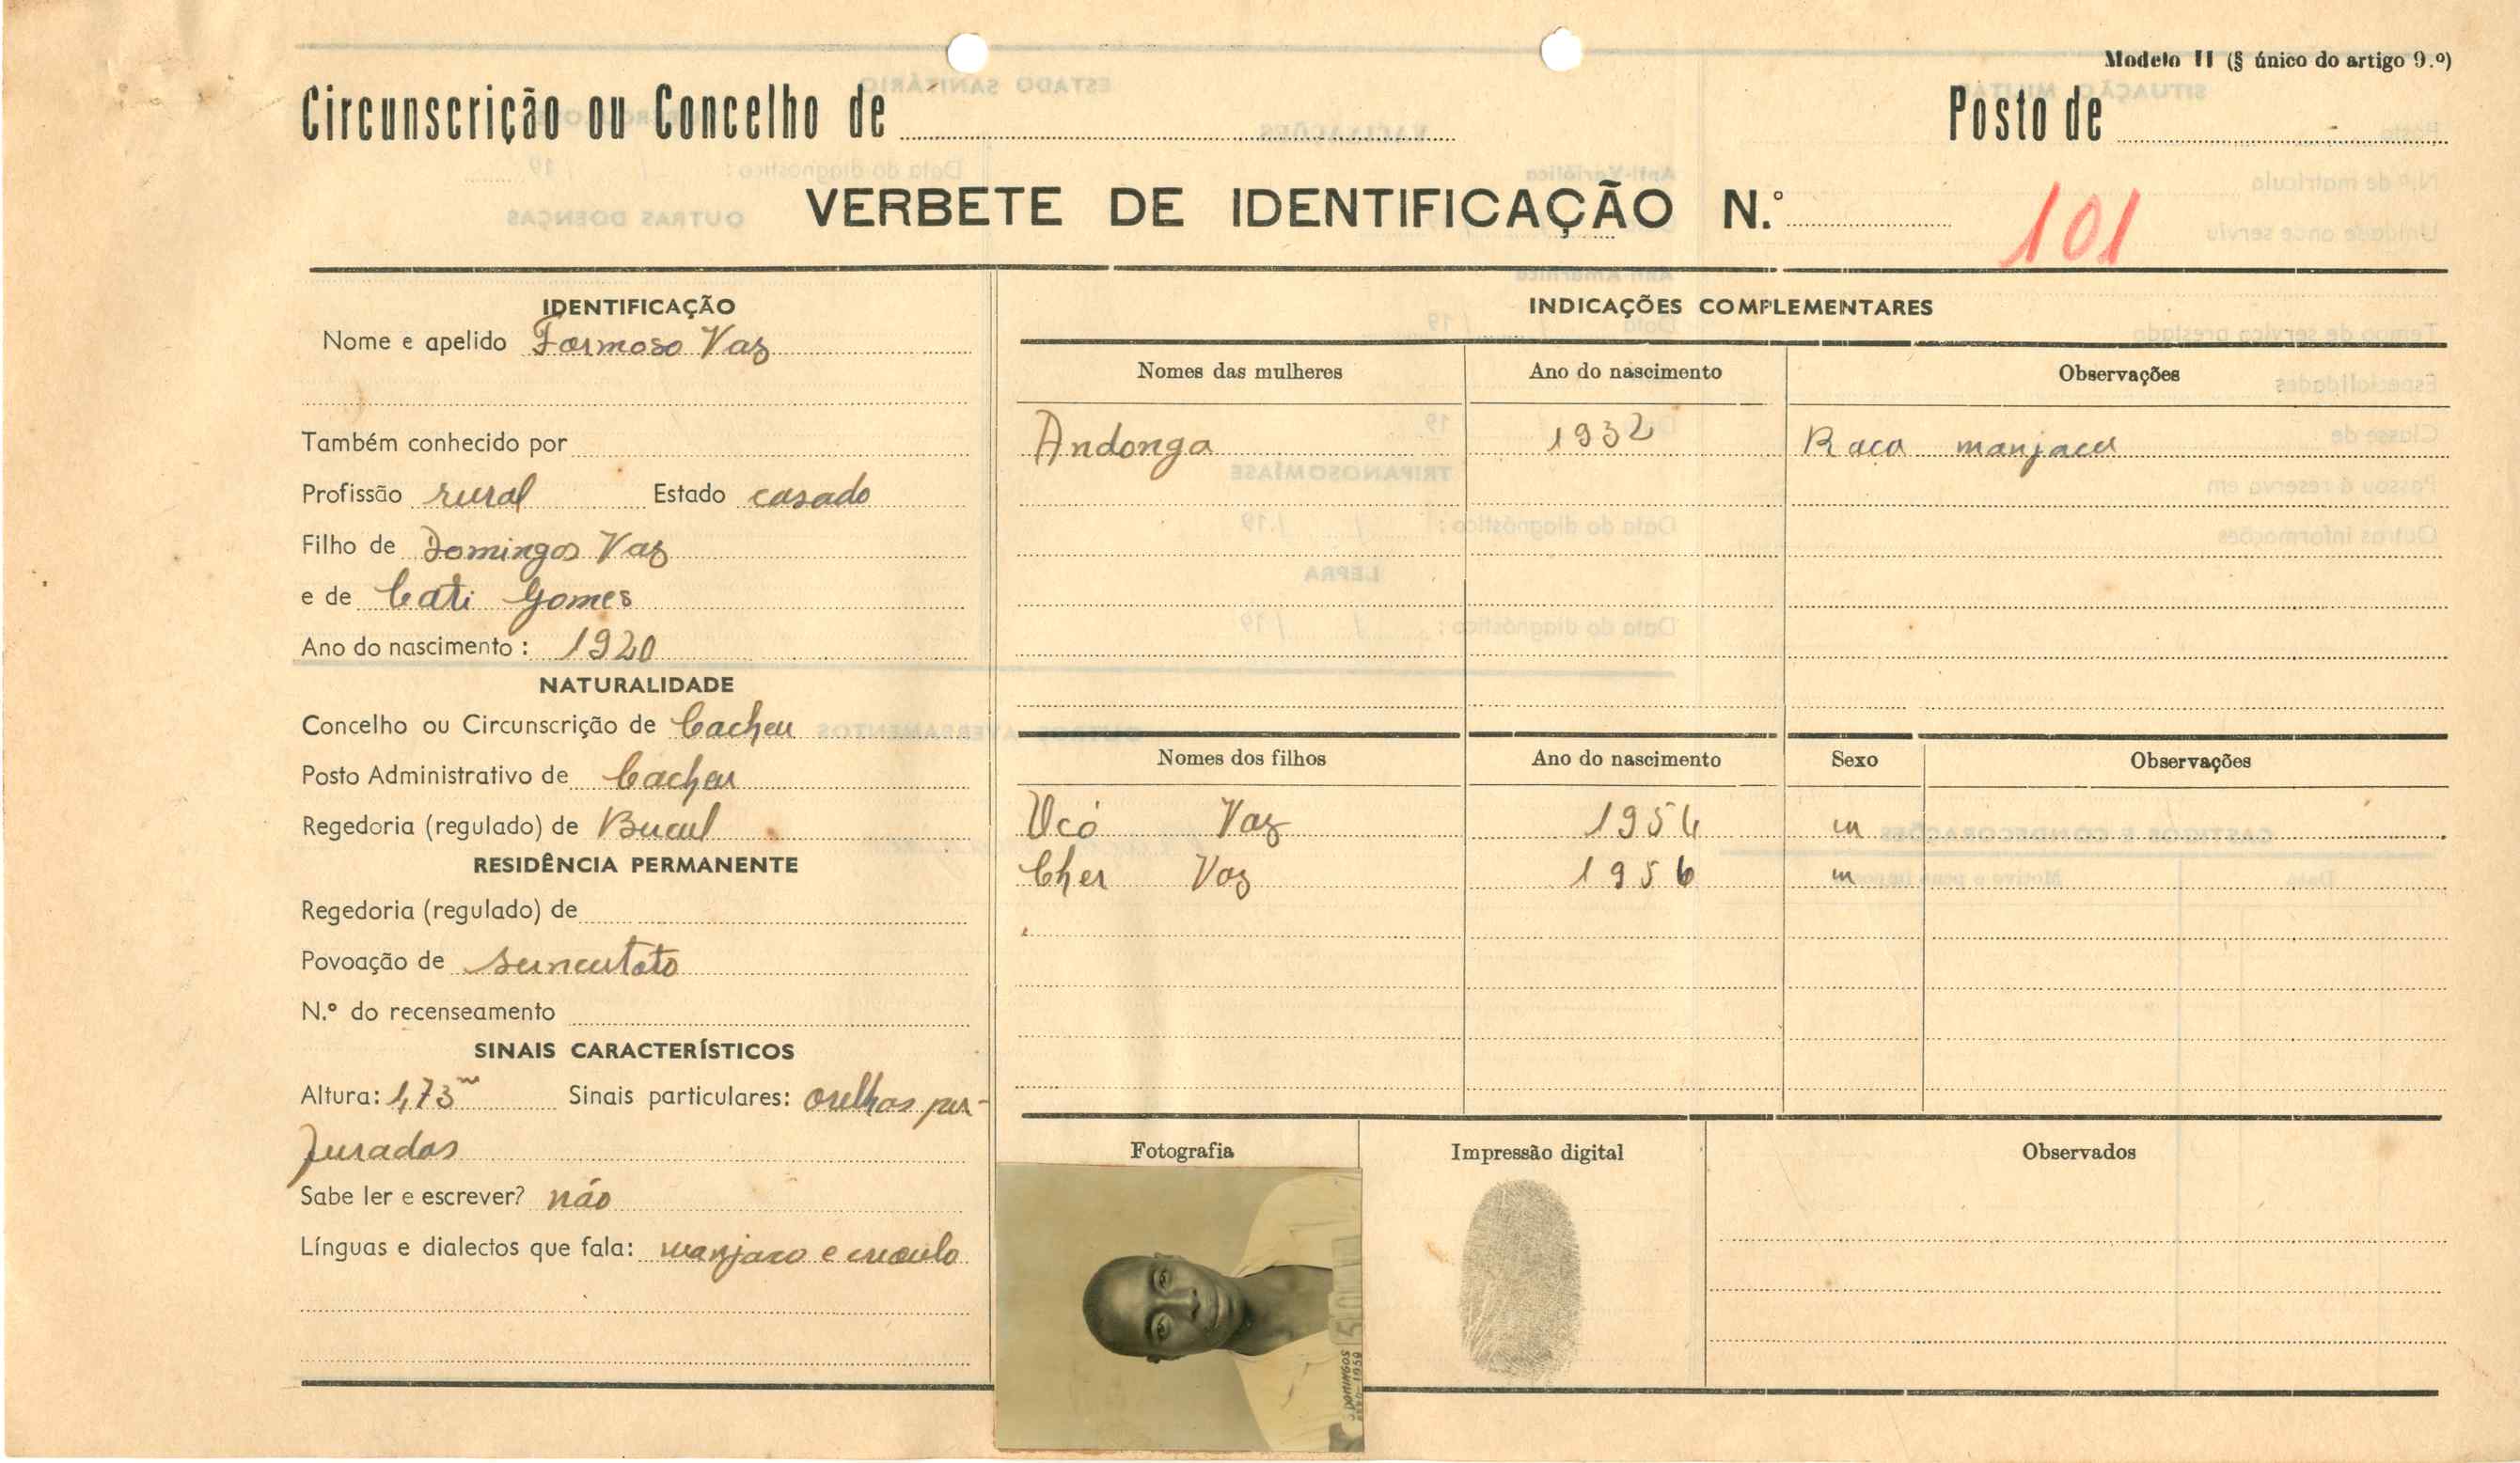 Modelo II (§ único do artigo 9.º)
Circunscrição ou Concelho de
Posto de
VERBETE DE IDENTIFICAÇÃO N.º 101
IDENTIFICAÇÃO
Nome e apelido Formoso Vaz
Também conhecido por
Profissão rural Estado casado
Filho de Domingos Vaz
e de Cati Gomes
Ano do nascimento: 1920
NATURALIDADE
Concelho ou Circunscrição de Cacheu
Posto Administrativo de Cacheu
Regedoria (regulado) de Bucul
RESIDÊNCIA PERMANENTE
Regedoria (regulado) de
Povoação de
N.º do recenseamento
SINAIS CARACTERÍSTICOS
Altura: 1,73m Sinais particulares: orelhas per-
furadas
Sabe ler e escrever? não
Línguas e dialectos que fala: manjaco e crioulo
INDICAÇÕES COMPLEMENTARES
Nomes das mulheres Ano do nascimento Observações
Andonga 1932 Raça manjaca
Nomes dos filhos Ano do nascimento Sexo Observações
Ucó Vaz 1954 m
Cher Vaz 1956 m
Fotografia Impressão digital Observados
DOMINGOS
1959